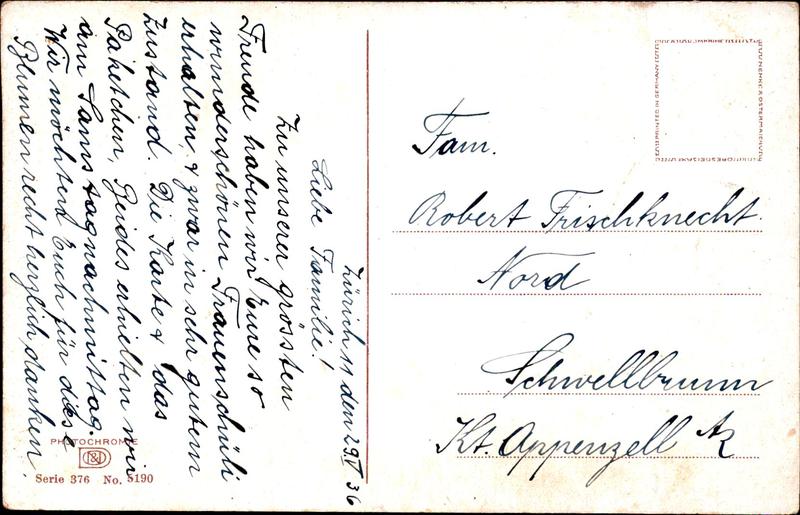 Zürich 11 den 29.V 36
Liebe Familie!
Zu unserer grössten
Freude haben wir Eure so
wunderschönen Frauenschüli
erhalten, & zwar in sehr gutem
Zustand. Die Karte & das
Päketchen, Beides erhielten wir
am Samstagnachmittag.
Wir möchten Euch für diese
Blumen recht herzlich danken.
Fam.
Robert Frischknecht.
Nord
Schwellbrunn
Kt. Appenzell AR
PHOTOCHROMIE
Serie 376 No. 5190
PRINTED IN GERMANY